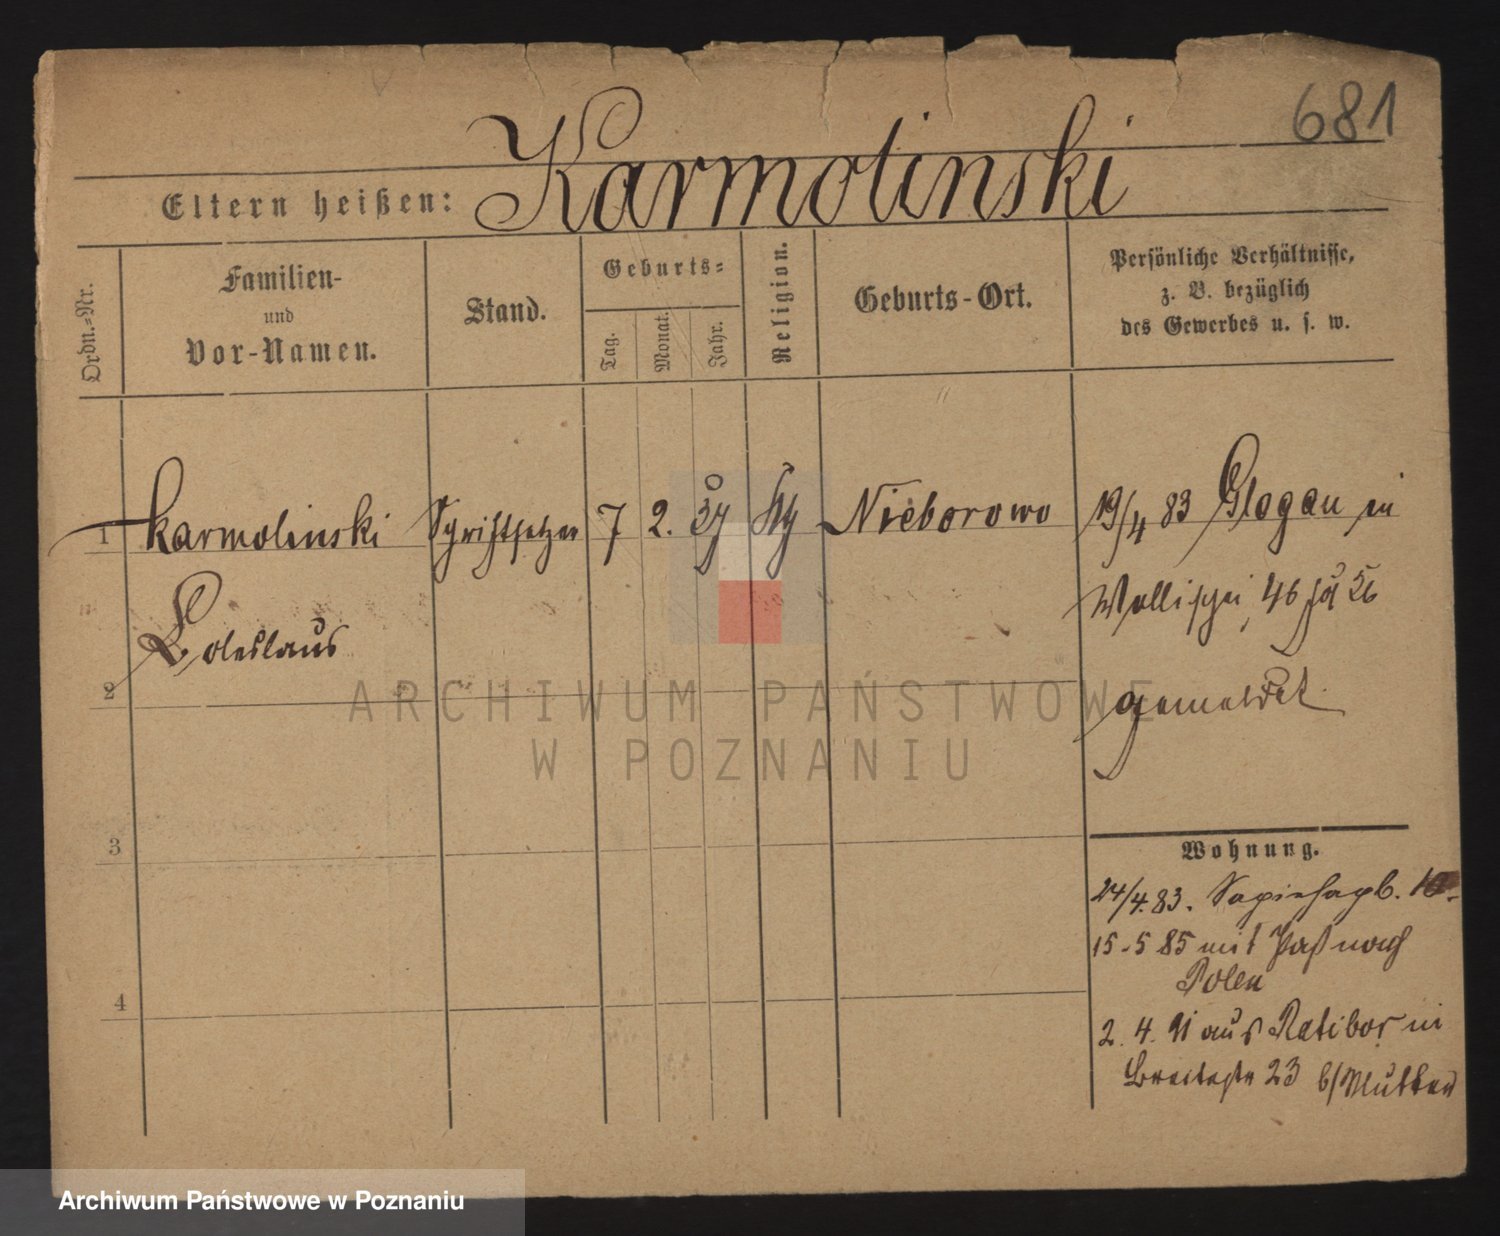 681
Karmolinski
Eltern heißen:
Ordn.-Nr.
Familien-
und
Vor-Namen.
Stand.
Geburts-
Tag.
Monat.
Jahr.
Religion.
Geburts-Ort.
Persönliche Verhältnisse,
z. B. bezüglich
des Gewerbes u. s. w.
1 Karmolinski Schriftsetzer 7 2. Nieborowo 19/4 83 Glogau in
Boleslaus
Wallischei 46
gemeldet.
2
ARCHIWUM PAŃSTWOWE
W POZNANIU
3
Wohnung.
24/4.83. Sapiehapl. 10
15-5 85 mit Paß nach
Polen
4
2. 4. 91 aus Ratibor in
Breitestr 23 b/Mutter
Archiwum Państwowe w Poznaniu